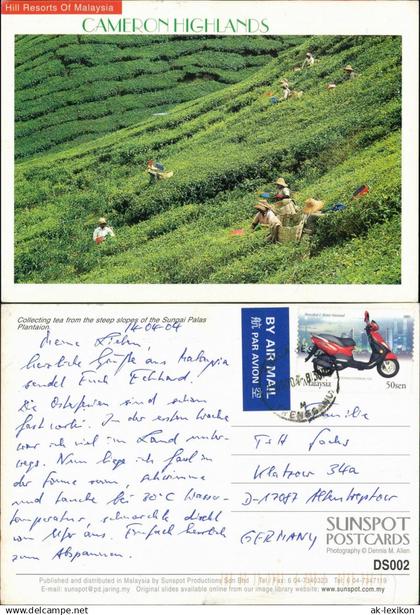 Hill Resorts Of Malaysia
CAMERON HIGHLANDS
Collecting tea from the steep slopes of the Sungai Palas
Plantaion.
14-04-04
Meine Lieben,
herzliche Grüße aus Malaysia
sendet Euch Eckhard.
Die Osterferien sind schon
fast vorbei. In der ersten Woche
war ich viel im Land unter-
wegs. Nun liege ich faul in
der Sonne rum, schwimme
und tauche bei 30°C Wasser-
temperatur, schnorchle direkt
vom Ufer aus. Einfach herrlich
zum Abspannen.
BY AIR MAIL
PAR AVION
Malaysia
50sen
Familie
Klatzow 34a
D-17087 Altentreptow
GERMANY
SUNSPOT
POSTCARDS
Photography © Dennis M. Allen
DS002
Published and distributed in Malaysia by Sunspot Productions Sdn Bhd Tel / Fax: 6 04-7340323 Tel: 6 04-7347119
E-mail: sunspot@pd.jaring.my Original slides available online from our image library. http://www.sunspotpro.com
ak-lexikon